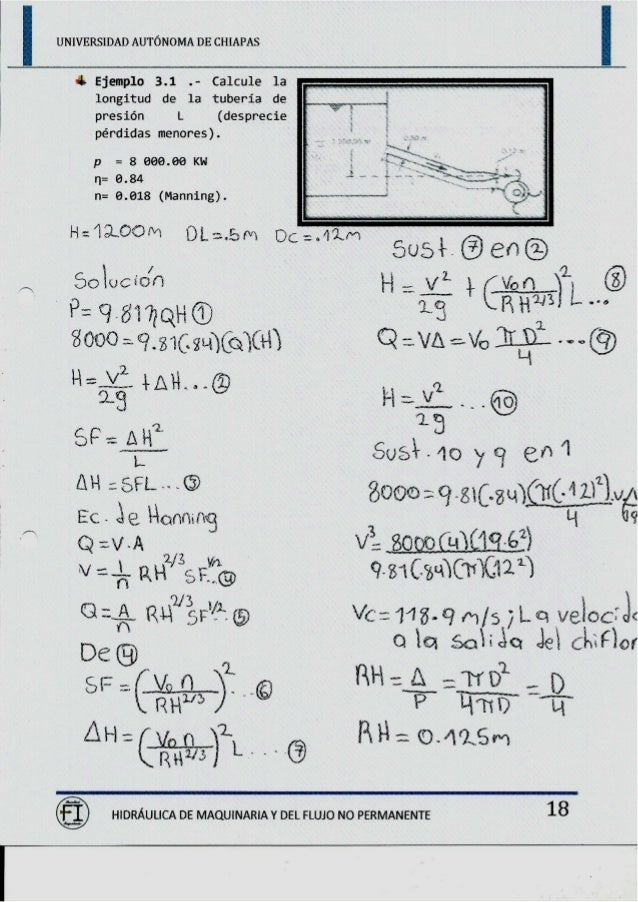 UNIVERSIDAD AUTÓNOMA DE CHIAPAS
Ejemplo 3.1 .- Calcule la
longitud de la tubería de
presión L (desprecie
pérdidas menores).
p = 8 000.00 KW
η= 0.84
n= 0.018 (Manning).
H=1200m DL=.5m Dc=.12m
Solución
P=9.81ηQH ①
8000=9.81(.84)(Q)(H)
H=V²/2g +ΔH...②
SF=ΔH²/L
ΔH=SFL...③
Ec. de Manning
Q=V.A
V=1/n RH^2/3 SF^1/2..④
Q=A/n RH^2/3 SF^1/2.⑤
De ④
SF=(Vo n/RH^2/3)²..⑥
ΔH=(Vo n/RH^2/3)²L...⑦
Sust. ⑦ en ②
H=V²/2g +(Von/RH^2/3)²L... ⑧
Q=VA=Vo πD²/4 ...⑨
H=V²/2g ...⑩
Sust. 10 y 9 en 1
8000=9.81(.84)(π(.12)²)/4
V³=8000(4)(19.62)/9.81(.84)(π)(.12²)
Vc=118.9 m/s; La
a la salida del
RH=A/P=πD²/4πD=D/4
RH=0.125m
FI
HIDRÁULICA DE MAQUINARIA Y DEL FLUJO NO PERMANENTE
18